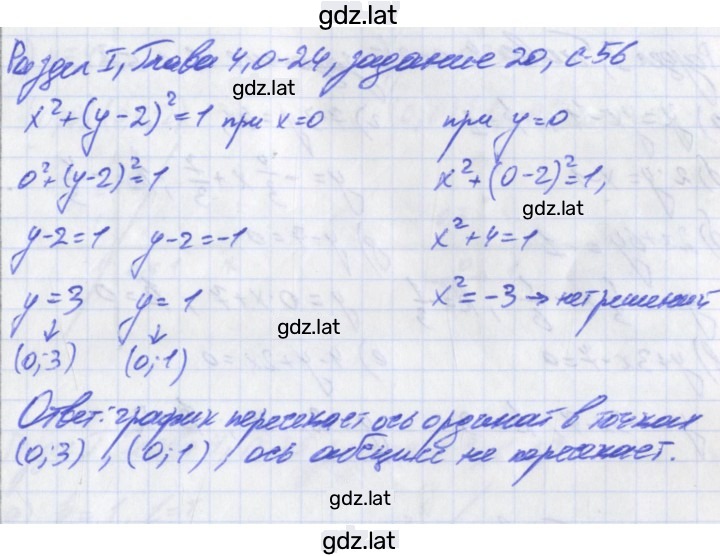 gdz.lat
Раздел I, Глава 4, О-24, задание 20, с-56
gdz.lat
x²+(y-2)²=1 при x=0 при y=0
0²+(y-2)²=1 x²+(0-2)²=1,
gdz.lat
y-2=1 y-2=-1 x²+4=1
y=3 y=1 x²=-3 → нет решений
gdz.lat
↓ ↓
(0;3) (0;1)
Ответ: график пересекает ось ординат в точках
(0;3), (0;1), ось абсцисс не пересекает.
gdz.lat
gdz.lat